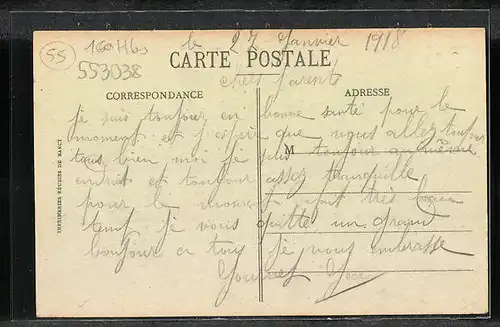 55
553038
le 27 Janvier 1918
CARTE POSTALE
chers parents
CORRESPONDANCE
ADRESSE
je suis toujours en bonne santé pour le
moment et j'espère que vous allez toujours
tous bien moi je suis toujour au même
endroit et toujour assez tranquille
M
pour le moment fait très
temp je vous quitte un grand
bonjour a tous je vous embrasse
IMPRIMERIES RÉUNIES DE NANCY